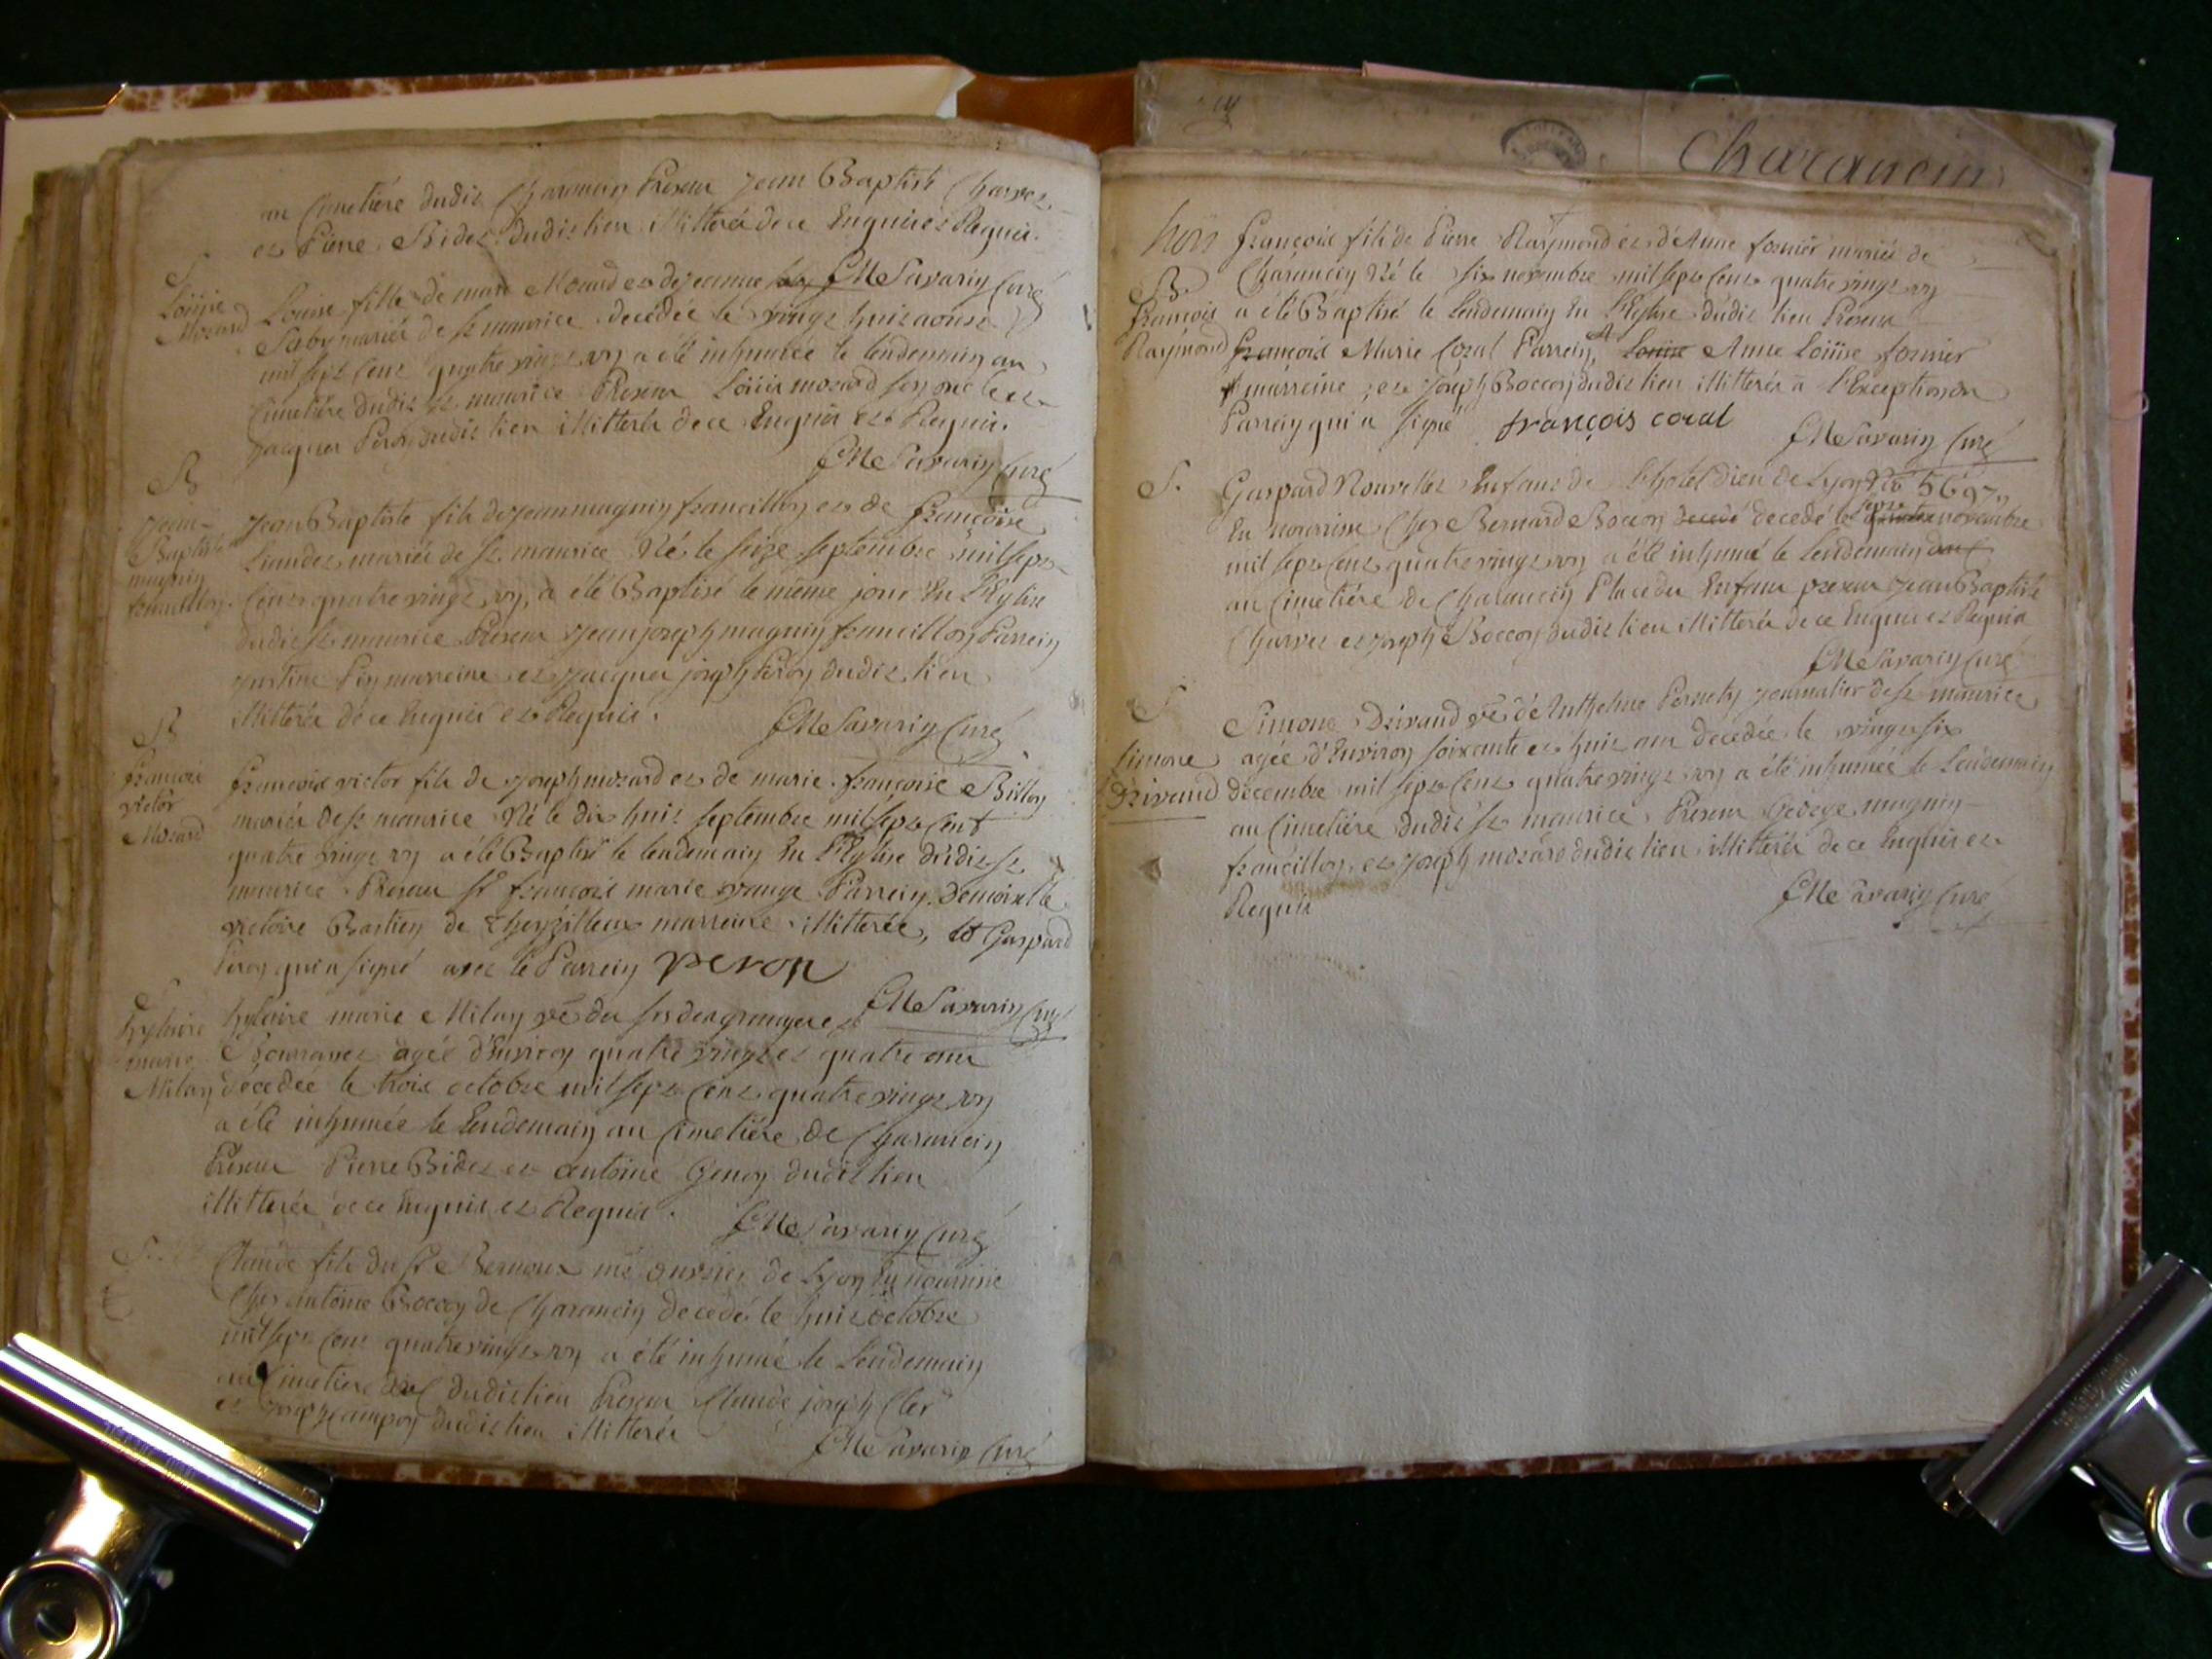 au Cimetiére dudit Charancin Présens Jean Baptiste Charvet
et Pierre Bidet dudit lieu illitterés de ce Enquis et Requis.
CMe Savarin Curé
S.
Loüise
Mozard
Louise fille de marc Mozard et de jeanne
mariés de st maurice decédée le vingt huit aoust
mil sept cent quatre vingt un a été inhumée le lendemain au
Cimetiére dudit st maurice Présens Loüis mozard son oncle et
Jacques Peron dudit lieu illitterés de ce Enquis et Requis.
CMe Savarin Curé
B
Jean
Baptiste
magnin
francillon
Jean Baptiste fils de Jean magnin francillon et de françoise
mariés de st. maurice Né le seize septembre mil sept
Cent quatre vingt un, a été Baptisé le même jour En l'Eglise
dudit st maurice Présens Jean joseph magnin francillon Parrein
justine Pin marreine et Jacques joseph Peron dudit lieu
illitterés de ce Enquis et Requis.
CMe Savarin Curé
B
françois
victor
Mozard
françois victor fils de Joseph mozard et de marie françoise Billon
mariés de st maurice Né le dix huit septembre mil sept Cent
quatre vingt un a été Baptisé le lendemain En l'Eglise dudit st
maurice Présens sr françois marie Parrein, Demoiselle
victoire Bastien de marreine illitterée, et Gaspard
Peron qui a signé avec le Parrein peron
CMe Savarin Curé
S
hylaire
marie
Milan
hylaire marie Milan ve du
agée d'Environ quatre vingt et quatre ans
decedée le trois octobre mil sept Cent quatre vingt un
a été inhumée le lendemain au Cimetiére de Charancin
Présens Pierre Bidet et antoine Genon dudit lieu
illitterés de ce Enquis et Requis.
CMe Savarin Curé
S.
Claude fils du sr Bernoux me ouvrier de Lyon En nourrice
Chez antoine Boccon de Charancin decedé le huit octobre
mil sept Cent quatre vingt un a été inhumé le lendemain
au Cimetiere dudit lieu Présens Claude joseph Cler
et joseph campon dudit lieu illitterés
CMe Savarin Curé
Charancin
huit
B.
françois
Raymond
françois fils de Pierre Raymond et d'Anne fornier mariés de
Charancin Né le six novembre mil sept Cent quatre vingt un
a été Baptisé le lendemain En l'Eglise dudit lieu Présens
françois Marie Coral Parrein, Louise Anne Loüise fornier
marreine, et Joseph Boccon dudit lieu illitterés à l'Exception du
Parrein qui a signé françois coral
CMe Savarin Curé
S.
Gaspard Nouvellet Enfant de l'hotel Dieu de Lyon No 5697
En nourrisse Chez Bernard Boccon decedé decedé le sept novembre
mil sept Cent quatre vingt un a été inhumé le lendemain
au Cimetiére de Charancin Place des Enfans présens Jean Baptiste
Charvet et joseph Boccon dudit lieu illitterés de ce Enquis et Requis
CMe Savarin Curé
S
simone
Drivaud
Simone Drivaud ve de Anthelme Pernety journalier de st maurice
agée d'Environ soixante et huit ans decedée le vingt six
decembre mil sept Cent quatre vingt un a été inhumée le lendemain
au Cimetiére dudit st maurice, Présens George magnin
francillon, et joseph mozard dudit lieu illitterés de ce Enquis et
Requis
CMe Savarin Curé